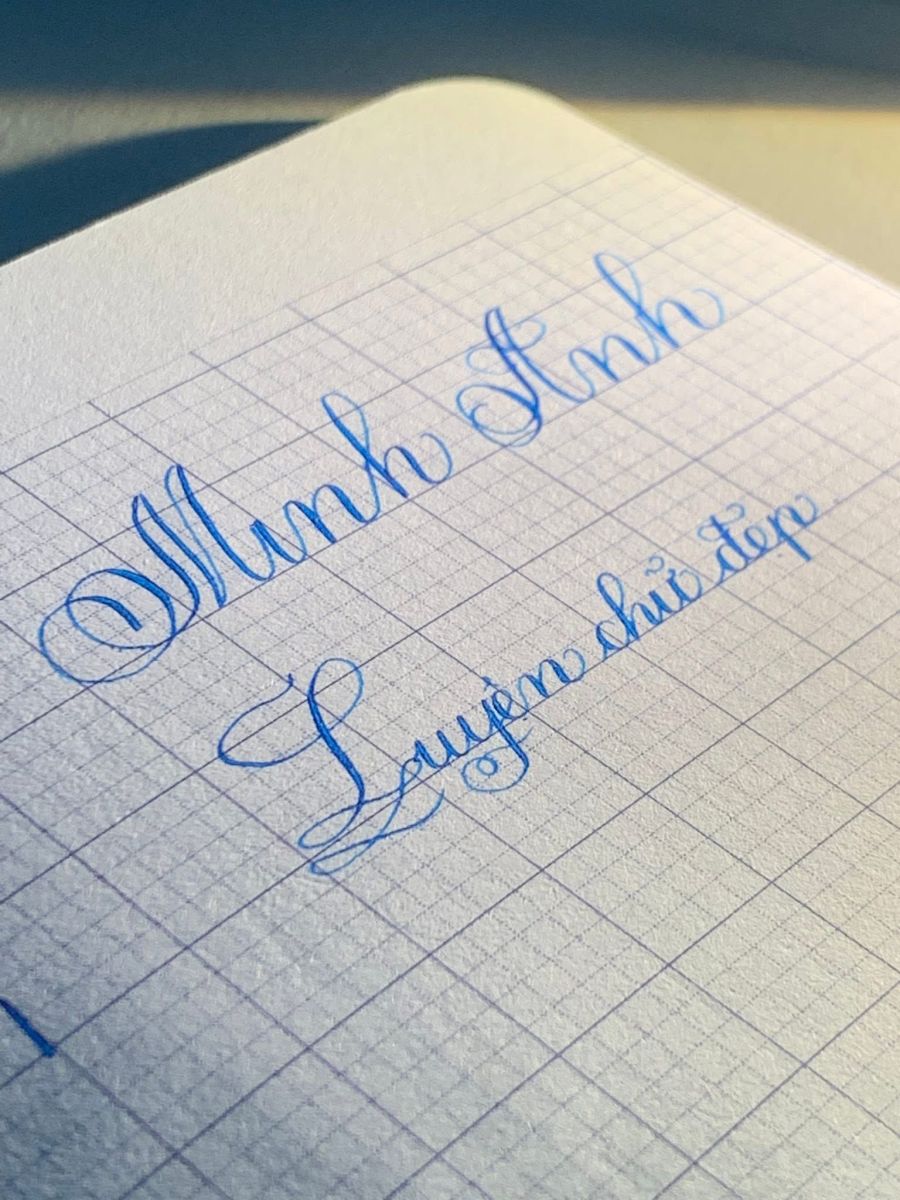 Minh Anh
Luyện chữ đẹp